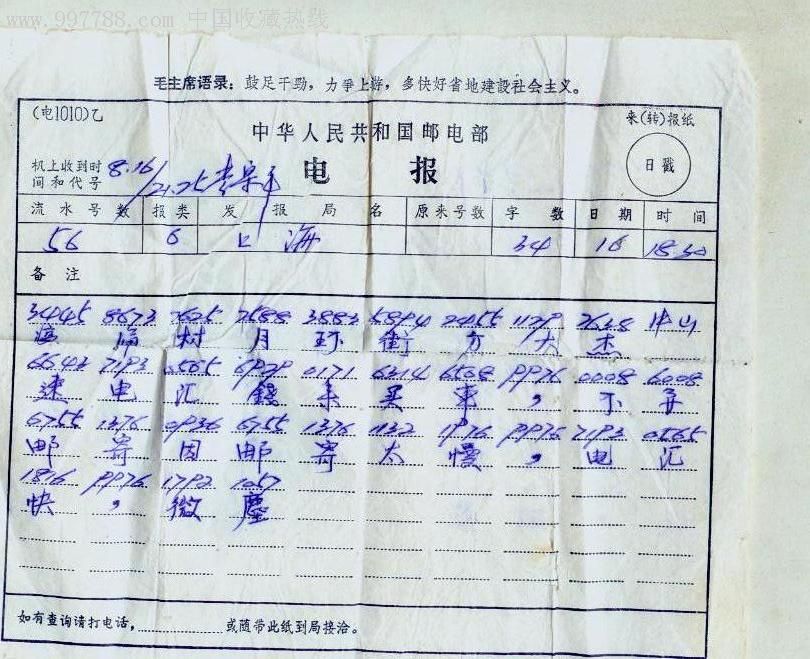 www.997788.com 中国收藏热线
毛主席语录：鼓足干劲，力争上游，多快好省地建設社会主义。
(电1010)乙
中华人民共和国邮电部
来(转)报纸
机上收到时间和代号 8.16/21.25
电 报
日戳
流水号数 报类 发报局名 原来号数 字数 日期 时间
56 6 上海 34 16 18.30
备注
3445 8673 2625 2588 3883 5894 2455 1129 2638 中山
村 月 环 街 方 大 杰
6643 7193 0565 6929 0171 6314 6508 9976 0008 6008
速 电 汇 錢 来 买 車 ， 不
6755 1376 0936 6755 1376 1132 1976 9976 7193 0565
邮 寄 因 邮 寄 太 慢 ， 电 汇
1816 9976 1792 1057
快 ， 微 塵
如有查询请打电话， 或随带此纸到局接洽。